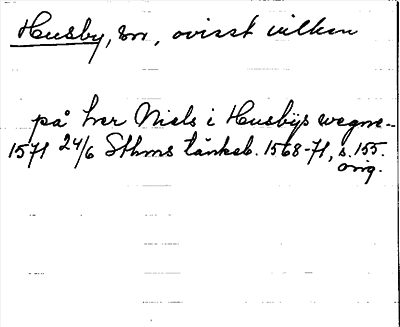 Husby, sn, ovisst vilken
på her Niels i Husbijs wegne
1571 24/6 Sthms tänkeb. 1568-71, s. 155.
orig.